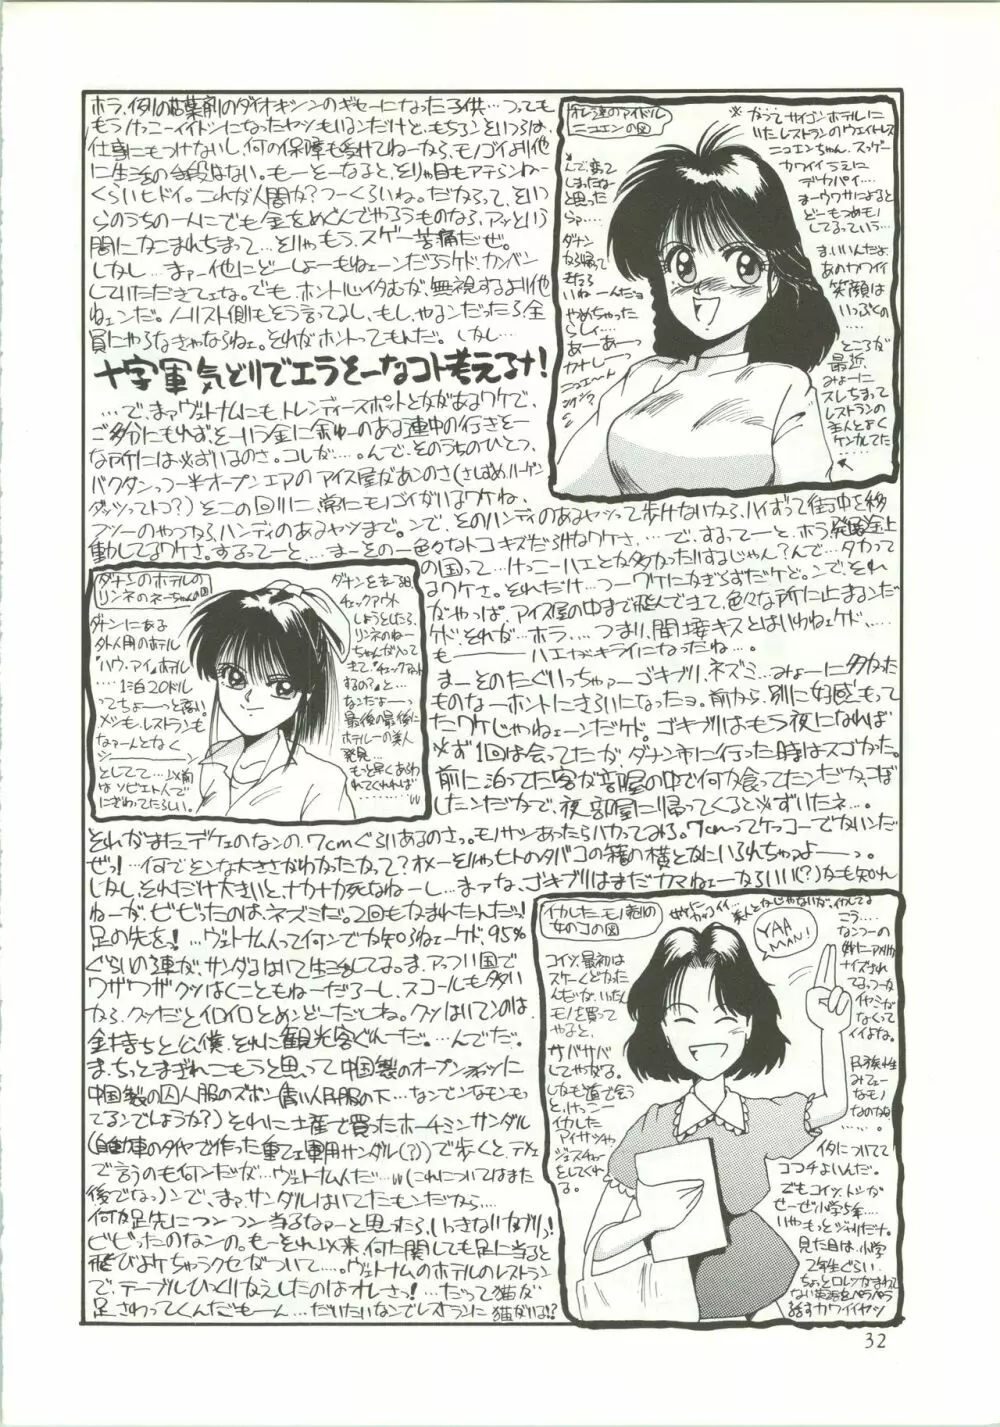 ホラ、例の枯葉剤のダイオキシンのギセーになった子供…つっても
もうけっこーイイトシになったヤツもいるんだけど、もちろんというのは、
仕事にもつけないし、何の保障も受けてねーから、モノゴイより他
に生活の手段はない。もーとーなると、そりゃ目もアテらんねー
くらいヒドイ。これが人間か?つーくらいね。だからって、そい
らのうちの一人にでも金をめぐんでやろうものなら、アッという
間にかこまれちまって…そりゃもう、スゲー苦痛だぜ。
しかし…まァー他にどーしょーもねェーンだろうケド、カンベン
していただきてェな。でも、ホント心イタむが、無視するより他
ねェンだ。ノリスト側もそう言ってるし、もし、やるンだったら全
員にやらなきゃならねェ。それがホントってもんだ。しかし…
十字軍気どりでエラそーなコト考えるナ!
…で、まァヴェトナムにもトレンディースポットとかがあるワケで、
ご多分にもれず、そーいう金に余ゆーのある連中の行きそー
な所には必ずいるのさ。コレが…。んで、そのうちのひとつ、
バクダンっつー半オープンエアのアイス屋があんのさ(さしずめハーゲン
ダッツってトコ?)そこの回りに、常にモノゴイがいるワケね、
フツーのやつから、ハンディのあるヤツまで。ンで、そのハンディのあるヤツって歩けないから、ハイずって街中を移
動してるワケさ。するってーと…まーその一色々なトコキズだらけなワケさ、…で、するってーと、ホラ発展途上
の国って…けっこーハエとか多かったりするじゃん?んで…タカって
るワケさ。それだけ…つーワケにかぎらずだケど。ンで、それ
がやっぱ、アイス屋の中まで飛んできて、色々な所に止まるンだ
ケド、それが…ホラ…つまり、間接キスとはいわねェケド、…
も————ハエがキライになったね…。
まーそのたぐいっちゃァーゴキブリ、ネズミ…みょーに多かった
ものなーホントにきらいになったョ。前から、別に好感もって
たワケじゃねェーンだケド。ゴキブリはもう夜になれば
必ず1回は会ってたが、ダナン市に行った時はスゴかった。
前に泊ってた客が部屋の中で何か食ってたンだか、こぼ
したンだかで、夜部屋に帰ってくると必ずいたネ…。
それがまたデケェのなんの、7cmぐらいあるのさっ。モノサシあったらハカってみろ。7cmってケッコーでかいンだ
ぜっ!…何でそンな大きさがわかったかって?オメーそりゃヒトのタバコの箱の横とかにいられちゃうよーーっ。
しかし、それだけ大きいと、ナカナカ死なねーし…まァな、ゴキブリはまだカマねェーからいい(?)かも知れん
ねーが、ビビったのは、ネズミだ。2回もかまれたんだっ!
足の先をっ!…ヴェトナム人って何ンでか知らねェーケド、95%
ぐらいの確率が、サンダルはいて生活してる。ま、アッつい国で
ワザワザクツはくこともねーだろーし、スコールも多い
から、クツだとイロイロとめンどーだしね。クツはいてンのは
金持ちと公僕、それに観光客ぐれーだ。…んでだ。
ま、ちっとまぎれこもうと思って中国製のオープンシャツに
中国製の囚人服のズボン(青い人民服の下…なンでンなモンもっ
てるンでしょうか?)それに土産で買ったホーチミンサンダル
(自動車のタイヤで作った重てェ軍用サンダル(?))で歩くと、テメェ
で言うのも何ンだが…ヴェトナム人だ…w(これについてはまた
後でなっ)ンで、まァサンダルはいてたモンだから…
何か足先にツンツン当るなァーと思ったら、いきなりガブリっ!
ビビったのなンの。もーそれ以来、何に関しても足に当ると
飛びよけちゃうクセがついて…。ヴェトナムのホテルのレストラン
で、テーブルひっくりかえしたのはオレさっ!…だって猫が
足さわってくんだもーん…だいたいなンでレストランに猫がいる!?
オレ達のアイドル
ニコエンの図
※かつてサイゴンホテルに
いたレストランのウェイトレス
ニコエンちゃん。スッゲー
カワイイうえに
デカパイ…
まーウワサによると
どーもつめモノ
してるっていう…
ま、いいんだよ
あのカワイイ
笑顔は
いっぷくの…
ところが
最近、
みょーに
スレちまって
レストランの
主人とよく
ケンカしてた
……
んで、変って
しまったなと
思った
らァ…
ダナン
から帰って
きたら
いねーんだョ
やめちゃった
らしィ…
あーあーっ
カナしー
ニュエーん
ダナンのホテルの
リンネのネーちゃんの図
ダナンにある
外人用のホテル
"ハウ・アイ"ホテル
…1泊20ドル
ってちょーっと高い。
メシもレストランも
なァーんとなく
シーーーン
としてて…以前
は、ソビエト人で
にぎわってたらしい。
ダナンを去る日
チェックアウト
しようとしたら、
リンネのねー
ちゃんが入って
きて、"チェックアウト
するの?"と…
なンだよーっ
最後の最後に
ホテル一の美人
発見…
もっと早くあらわ
れてくれれば
………w
イカした、モノ売りの
女のコの図
YAA,
MAN!
コイツ、最初は
スゲーくどかった
んだが、いったん
モノを買って
やると、
サバサバ
してやがる。
しかも道で会う
と、けっこー
イカした
アイサツやジェスチャー
をしてくれる。
民族性
みてェー
なモノ
なのか
……。
イタについてて
ココチよいんだ。
でもコイツ、トシが
せーぜー小学5年…
いやもっとジャリだナ。
見た目は、小学
2年生ぐらい、
ちょっとロレツがまわって
ない英語をペラペラ
話すカワイイヤツ
32